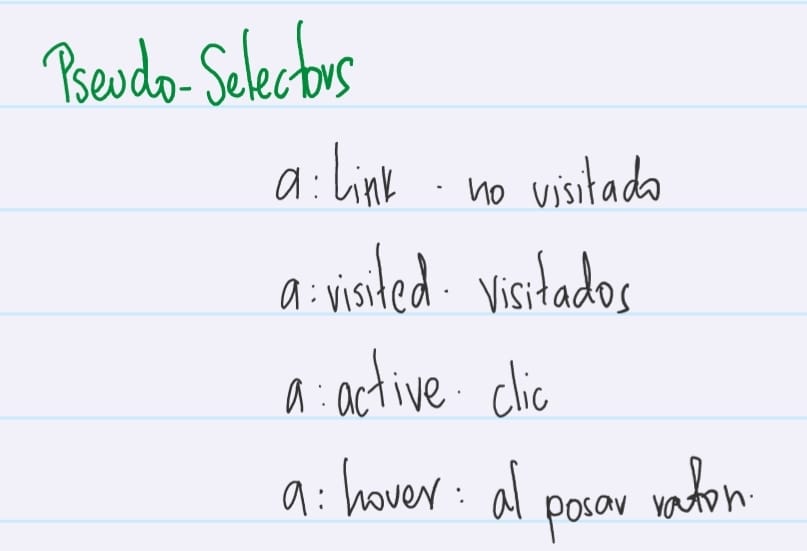 Pseudo-Selectors
a: Link · no visitado
a: visited · visitados
a: active · clic
a: hover: al posar raton.